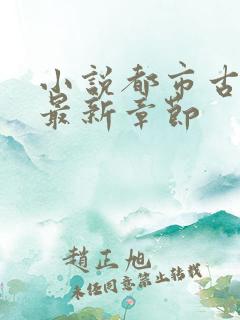 小説都市古
最新章節
趙正旭
未經同意禁止轉載